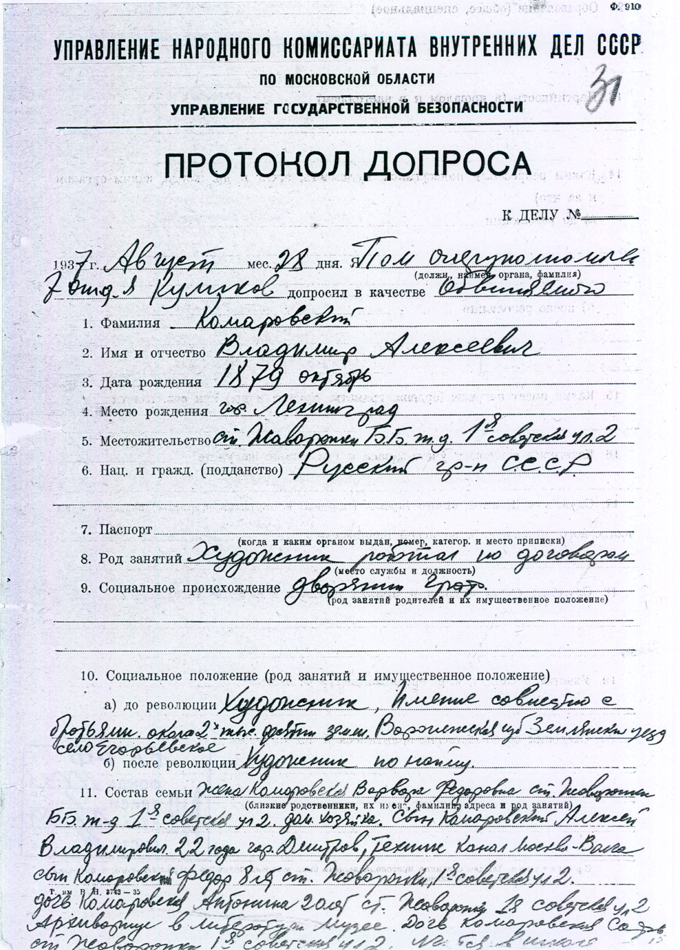 Ф. 910
УПРАВЛЕНИЕ НАРОДНОГО КОМИССАРИАТА ВНУТРЕННИХ ДЕЛ СССР
ПО МОСКОВСКОЙ ОБЛАСТИ
31
УПРАВЛЕНИЕ ГОСУДАРСТВЕННОЙ БЕЗОПАСНОСТИ
ПРОТОКОЛ ДОПРОСА
К ДЕЛУ №
1937 г. Август мес. 28 дня. я Пом оперуполномоч
(должн, наимен органа, фамилия)
7 отд-я допросил в качестве Обвиняемого
1. Фамилия Комаровский
2. Имя и отчество Владимир Алексеевич
3. Дата рождения 1879 октябрь
4. Место рождения гор. Ленинград
5. Местожительство ст. Жаворонки Б.Б. ж.д. 1я советская ул. 2
6. Нац. и гражд. (подданство) Русский гр-н С.С.С.Р
7. Паспорт
(когда и каким органом выдан, номер, категор. и место приписки)
8. Род занятий Художник работал по договорам
(место службы и должность)
9. Социальное происхождение дворянин граф.
(род занятий родителей и их имущественное положение)
10. Социальное положение (род занятий и имущественное положение)
а) до революции Художник, Имение совместно с
братьями. около 2х тыс. десятин земли. Воронежская губ Землянский уезд
село Егорьевское
б) после революции Художник по найму.
11. Состав семьи Жена Комаровская Варвара Федоровна ст. Жаворонки
(близкие родственники, их имена, фамилии, адреса и род занятий)
Б.Б. ж-д 1я советская ул 2. дом. хозяйка. Сын Комаровский Алексей
Владимирович. 22 года гор. Дмитров, Техник Канал Москва-Волга
сын Комаровский Федор 8 лет ст. Жаворонки, 1я советская ул 2.
дочь Комаровская Антонина 20 лет ст. Жаворонки 1я советская ул 2
Архивариус в Литературн Музее. Дочь Комаровская
ст Жаворонки 1я советская ул 2.